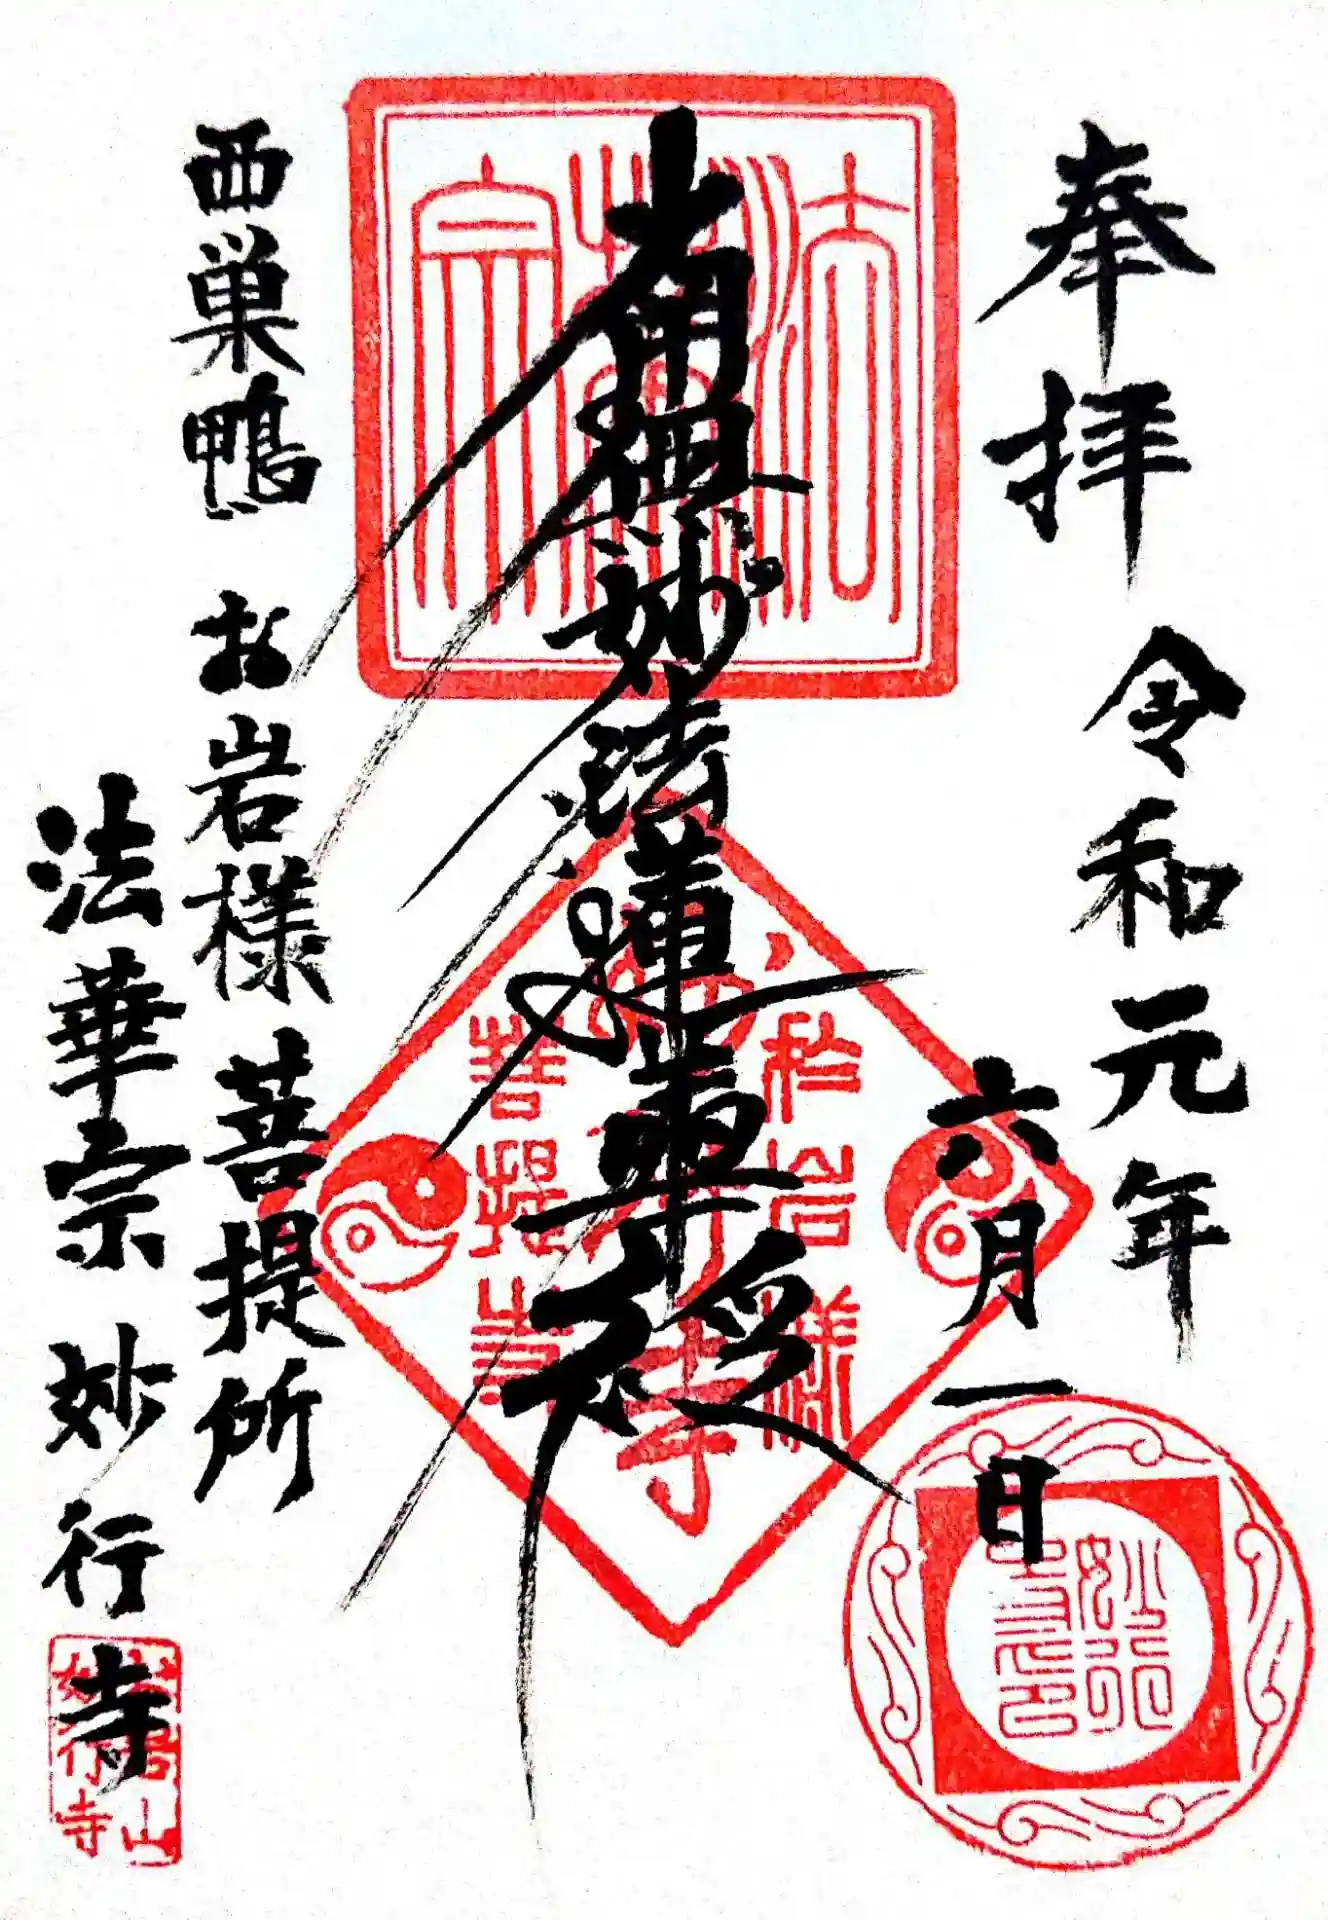 奉拝
令和元年
六月一日
南無妙法蓮華経
西巣鴨 お岩様 菩提所
法華宗 妙行寺
法華宗
於岩様
妙行寺
菩提寺
妙行寺印
妙行寺